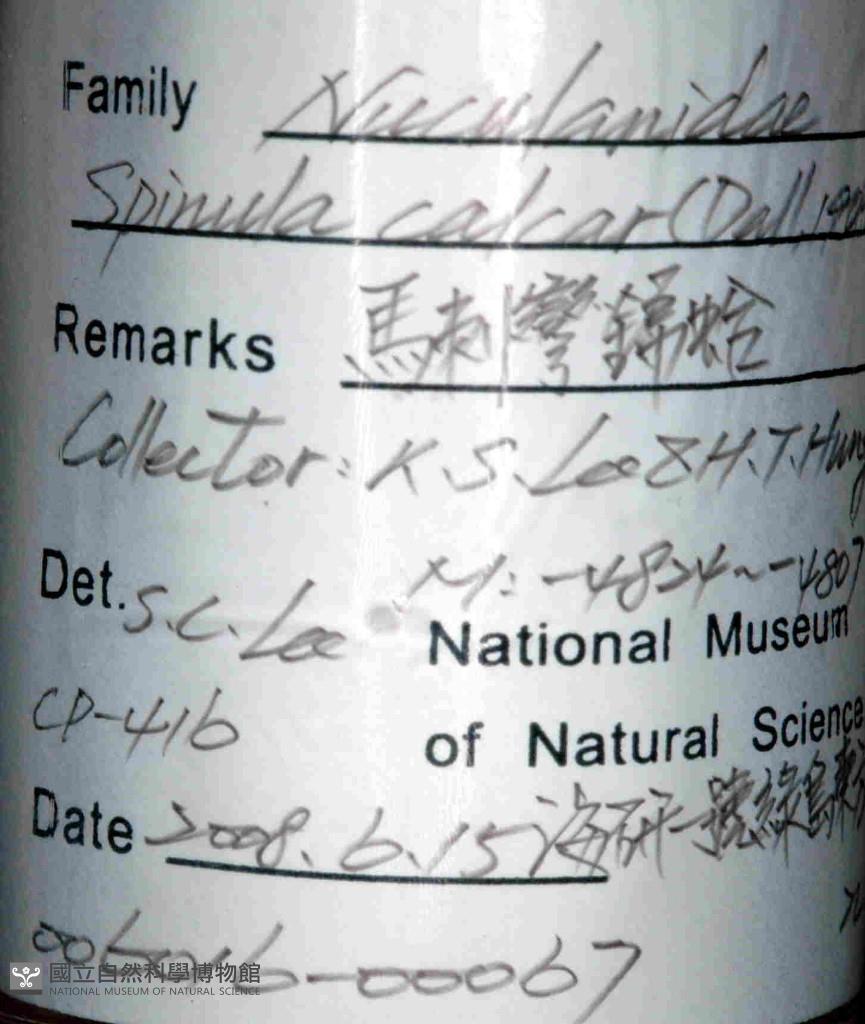 Family Nuculanidae
Spinula calcar (Dall, 190
Remarks 馬刺彎錦蛤
Collector: K.S. Lee & H.T. Hung
Det. S.C. Lee M: -4824~-4807
National Museum
CP-416
of Natural Science
Date 2008.6.15 海研一號綠島東
-00067
國立自然科學博物館
NATIONAL MUSEUM OF NATURAL SCIENCE